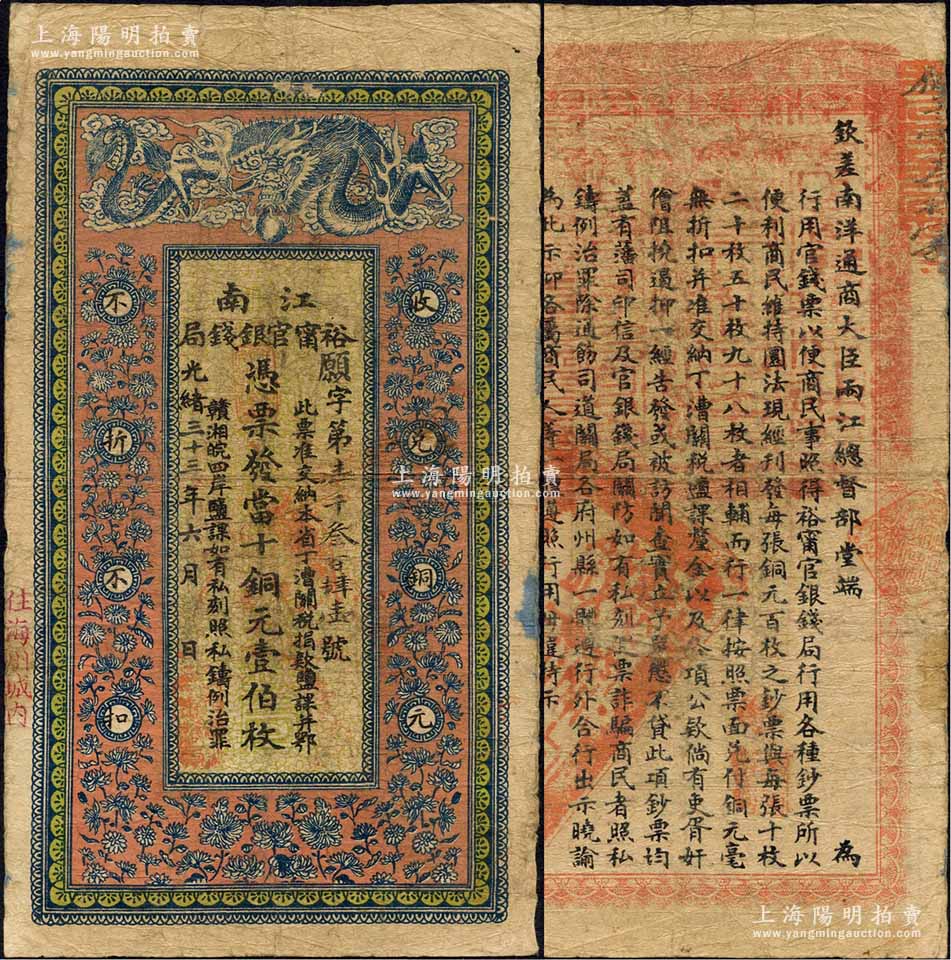 上海陽明拍賣
www.yangmingauction.com
江南
裕甯官銀錢局
收兌銅元
不折不扣
願字第壹千叁百肆拾壹號
此票准交納本省丁漕關稅捐款鹽課并鄂
憑票發當十銅元壹伯枚
贛湘皖四岸鹽課如有私刻照私鑄例治罪
光緒三十三年六月 日
住海州城內
上海陽明拍賣
www.yangmingauction.com
欽差南洋通商大臣兩江總督部堂端 為
行用官錢票以便商民事照得裕甯官銀錢局行用各種鈔票所以
便利商民維持圜法現經刊發每張銅元百枚之鈔票與每張十枚
二十枚五十枚九十八枚者相輔而行一律按照票面兌付銅元毫
無折扣并准交納丁漕關稅鹽課釐金以及公項公款倘有吏胥奸
儈阻撓遏抑一經告發或被訪聞查實立予嚴懲不貸此項鈔票均
蓋有藩司印信及官銀錢局關防如有私刻票詐騙商民者照私
鑄例治罪除通飭司道關局各府州縣一體遵行外合行出示曉諭
為此示仰各屬商民人等遵照行用毋違特示
上海陽明拍賣
www.yangmingauction.com